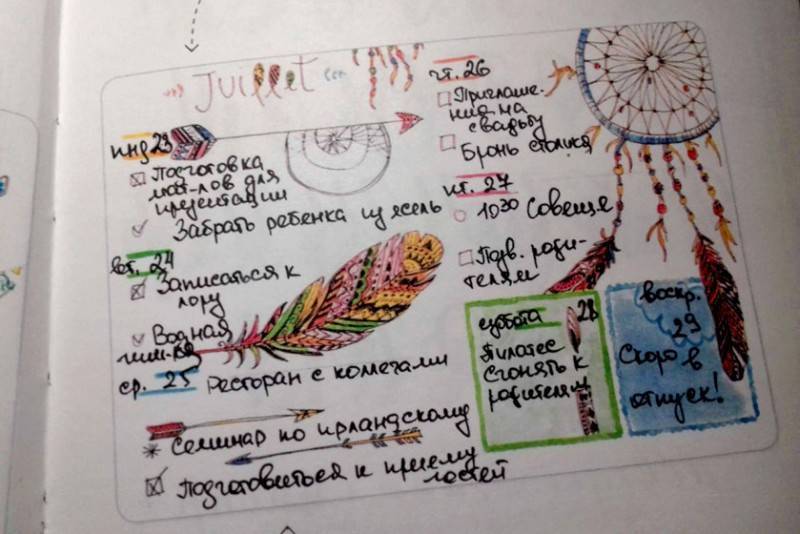 Juillet
пнд 23
Подготовка
мат-лов для
презентации
Забрать ребенка из ясель
вт. 24
Записаться к
лору
Водная
гим-ка
ср. 25 Ресторан с коллегами
Семинар по ирландскому
Подготовиться к приему
гостей
чт. 26
Приглаше-
ния на
свадьбу
Бронь столика
пт. 27
10 30 Совеще
Позв. роди-
телям
суббота 28
Пилатес
Сгонять к
родителям
воскр.
29
Скоро в
отпуск!